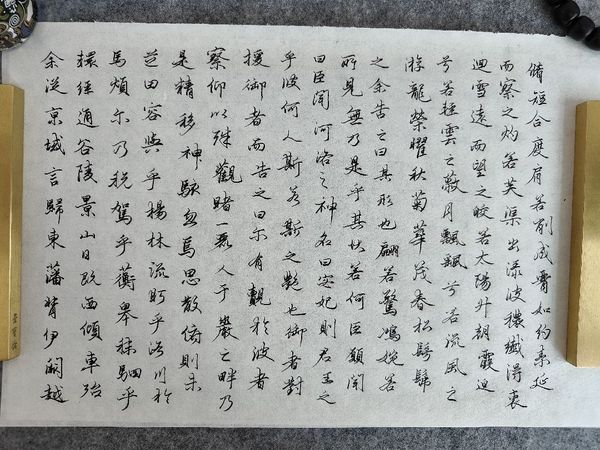 余從京域言歸東藩背伊闕越
轅經通谷陵景山日既西傾車殆
馬煩尔乃稅駕乎蘅皋秣駟乎
芝田容與乎楊林流眄乎洛川於
是精移神駭忽焉思散俯則未
察仰以殊觀睹一麗人于巖之畔乃
援御者而告之曰尔有覿於彼者
乎彼何人斯若斯之艷也御者對
曰臣聞河洛之神名曰宓妃則君王之
所見無乃是乎其狀若何臣願聞
之余告之曰其形也翩若驚鴻婉若
游龍榮曜秋菊華茂春松髣髴
兮若輕雲之蔽月飄飖兮若流風之
迴雪遠而望之皎若太陽升朝霞迫
而察之灼若芙渠出淥波穠纖得衷
脩短合度肩若削成腰如約素延